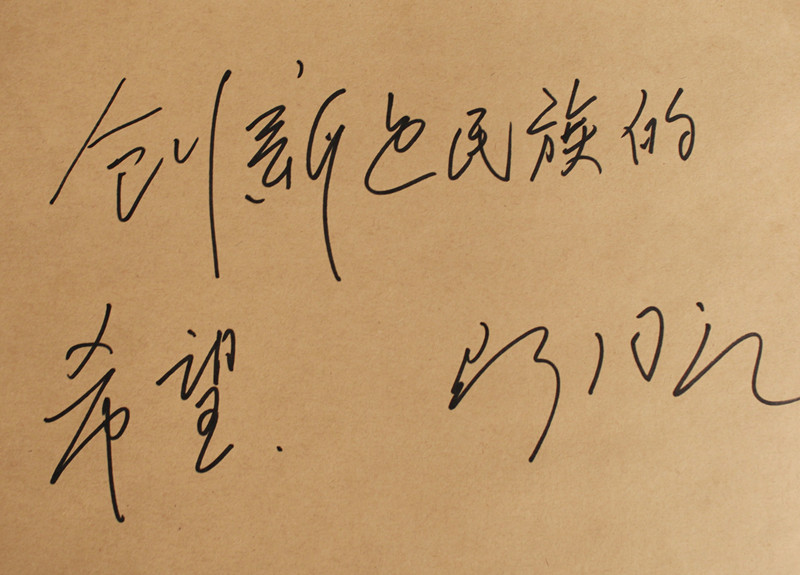 创新是民族的
希望.